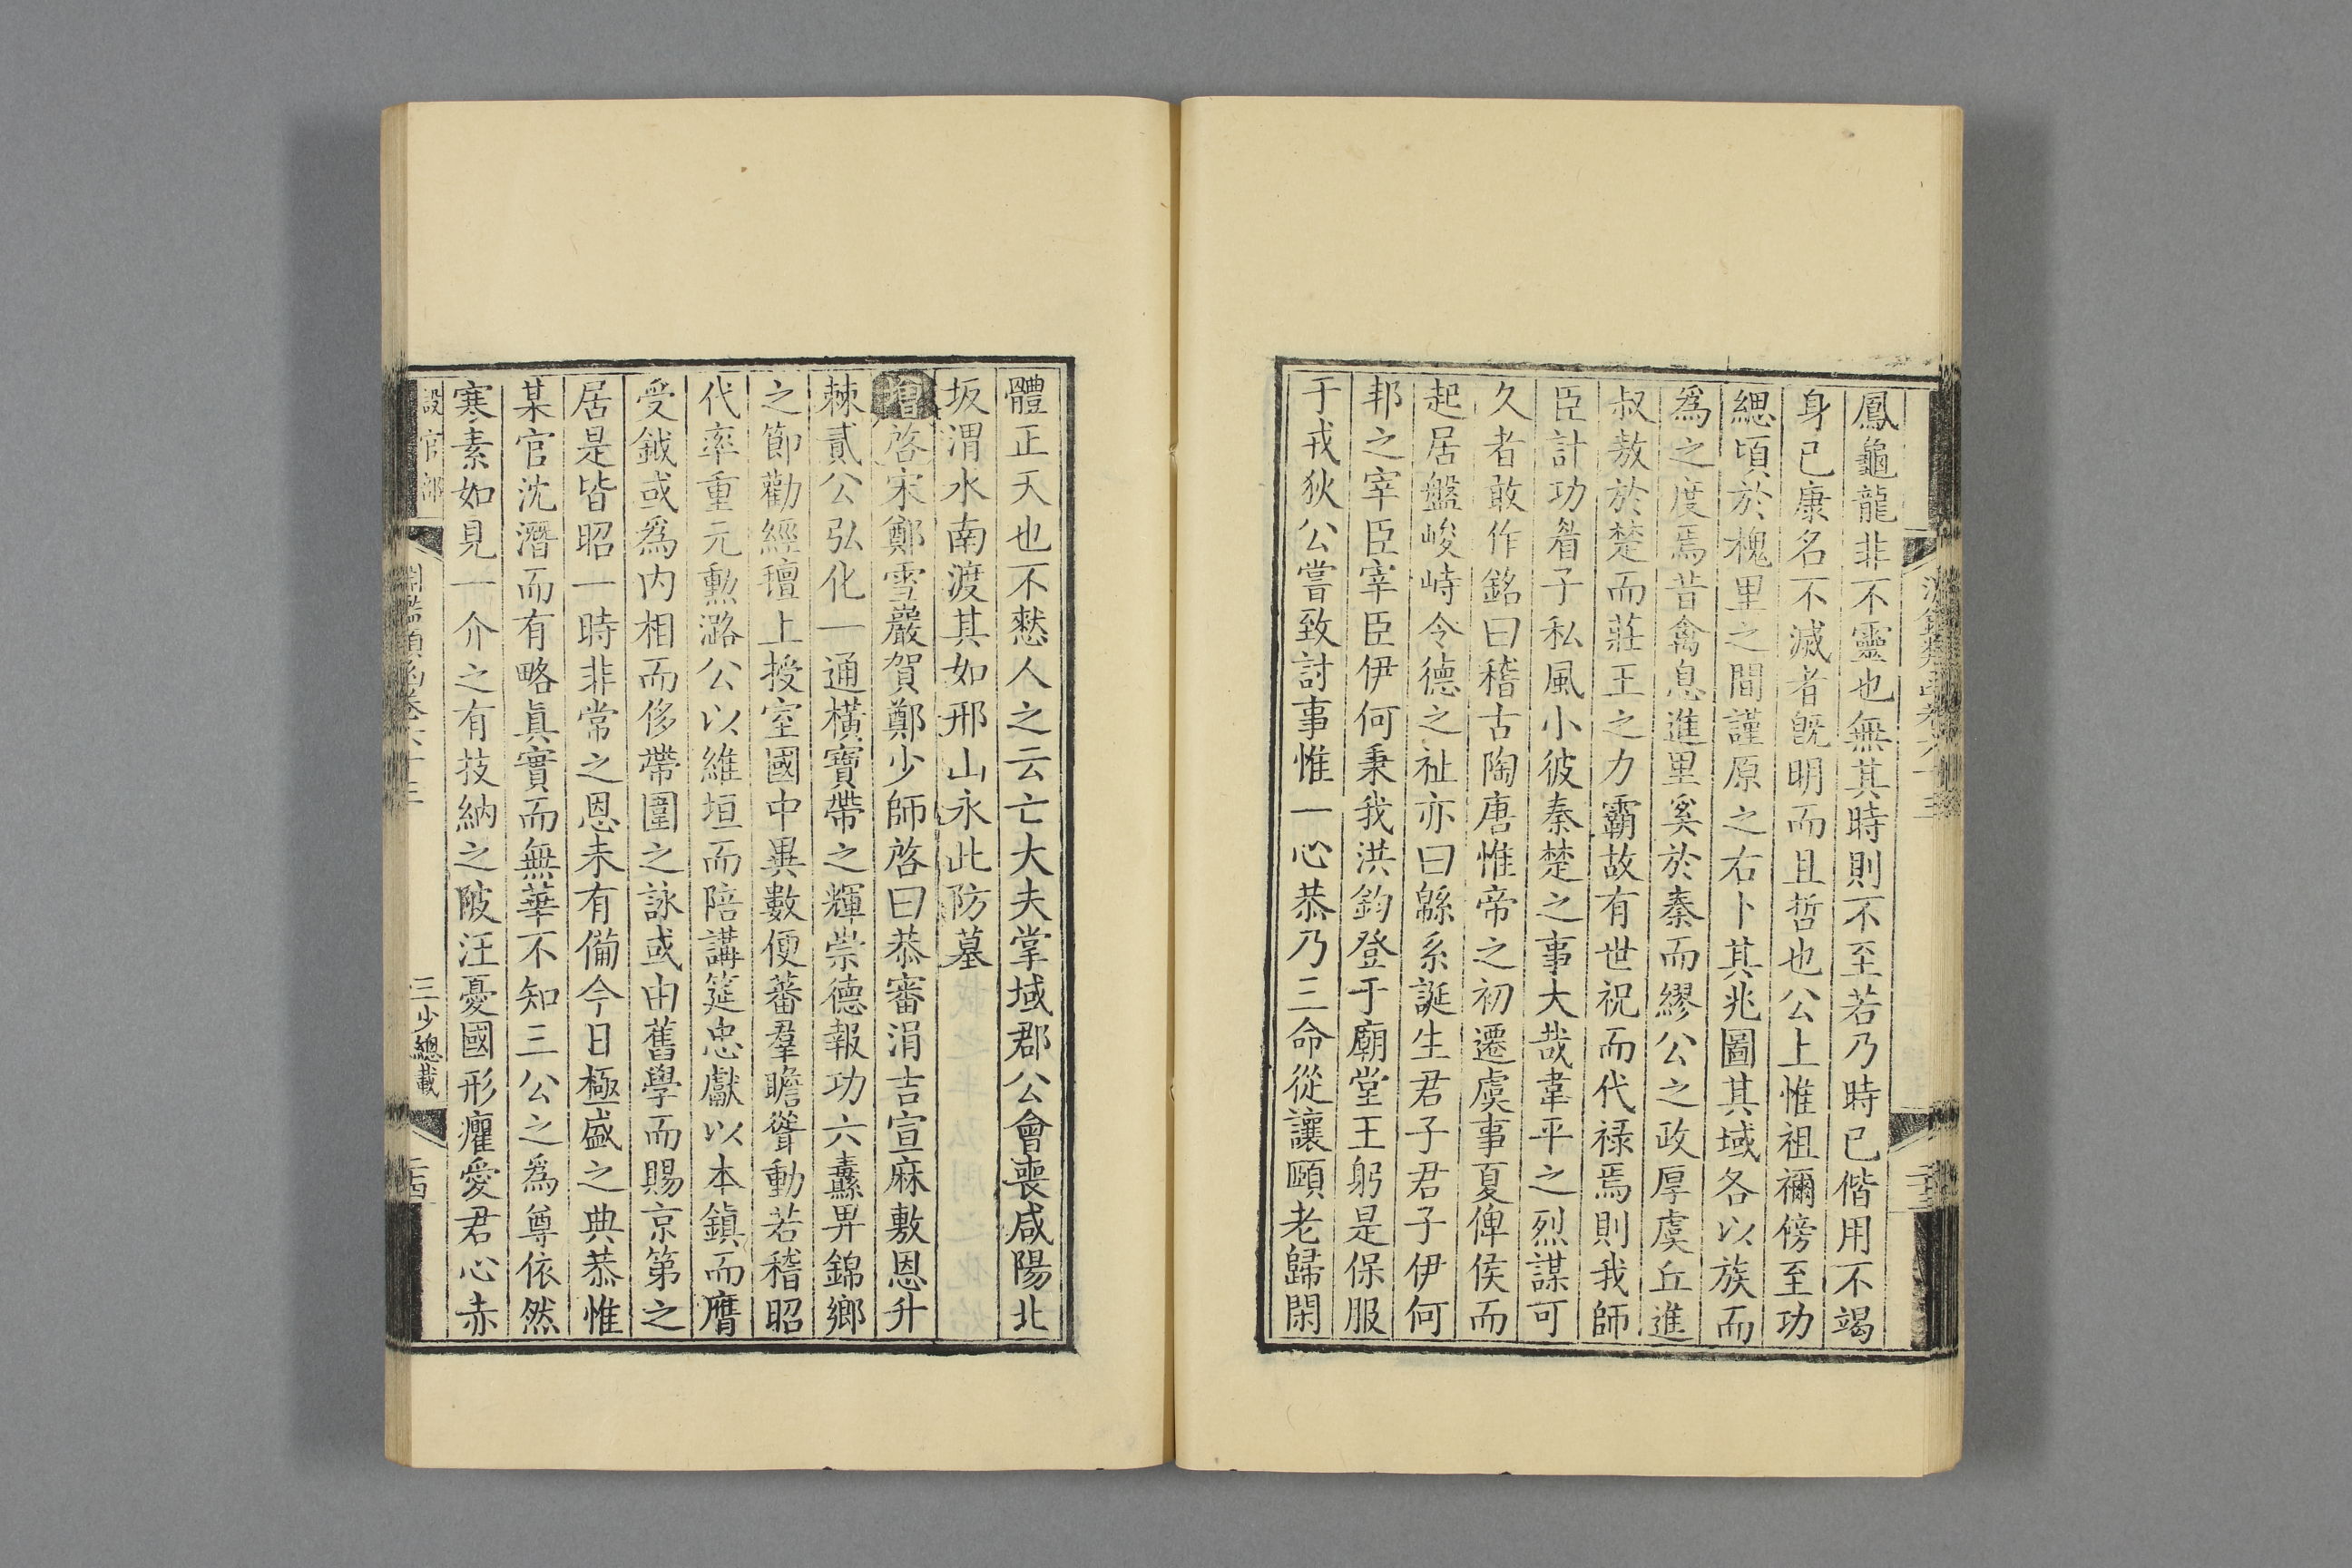 鳳龜龍非不靈也無其時則不至若乃時已偕用不竭
身已康名不滅者旣明而且哲也公上惟祖禰傍至功
緦頃於槐里之間謹原之右卜其兆圖其域各以族而
爲之度焉昔禽息進里奚於秦而繆公之政厚虞丘進
叔敖於楚而莊王之力霸故有世祝而代祿焉則我師
臣計功㫺子私風小彼秦楚之事大哉韋平之烈謀可
久者敢作銘曰稽古陶唐惟帝之初遷虞事夏俾侯而
起居盤峻峙令德之祉亦曰緜系誕生君子君子伊何
邦之宰臣宰臣伊何秉我洪鈞登于廟堂王躬是保服
于戎狄公嘗致討事惟一心恭乃三命從讓頤老歸閑
體正天也不憖人之云亡大夫掌域郡公會喪咸陽北
坂渭水南渡其如邢山永此防墓
增啓宋鄭雪巖賀鄭少師啓曰恭審涓吉宣麻敷恩升
棘貳公弘化一通橫寶帶之輝崇德報功六纛畀錦鄉
之節勸經䄠上授室國中異數便蕃羣瞻聳動若稽昭
代率重元勲潞公以維垣而陪講筵忠獻以本鎮而膺
受鉞或爲内相而侈帶圍之詠或由舊學而賜京第之
居是皆昭一時非常之恩未有備今日極盛之典恭惟
某官沈潛而有略眞實而無華不知三公之爲尊依然
寒素如見一介之有技納之陂汪憂國形癯愛君心赤
設官部
淵鑑類函卷六十三
三少總載
二十四